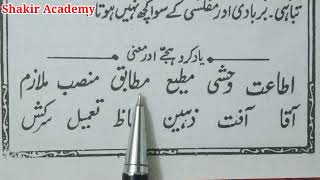 Shakir Academy
تباہی، بربادی اور مفلسی کے سوا کچھ نہیں ہوتا
یاد کرو ہجے اور معنی
اطاعت وحشی مطیع مطابق منصب ملازم
آقا آفت ذہین تعمیل سرکش